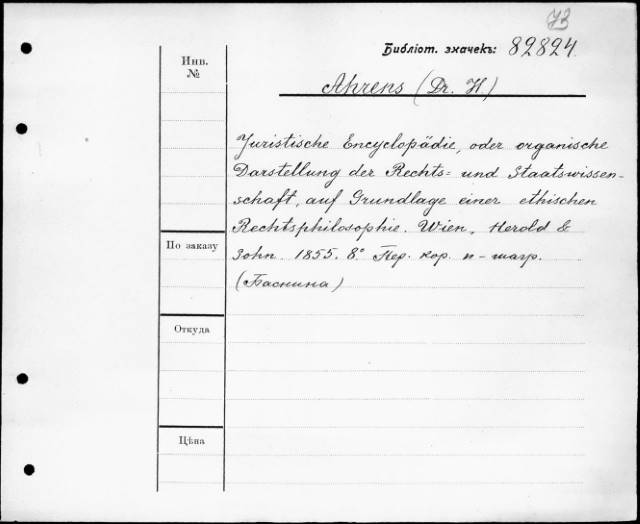 73
Библіот. значекъ: 82824.
Инв.
№
Ahrens (Dr. H)
Juristische Encyclopädie, oder organische
Darstellung der Rechts= und Staatswissen-
schaft, auf Grundlage einer ethischen
Rechtsphilosophie. Wien, Herold &
Sohn. 1855. 8.° Пер. кор. п-шагр.
(Баснина)
По заказу
Откуда
Цѣна